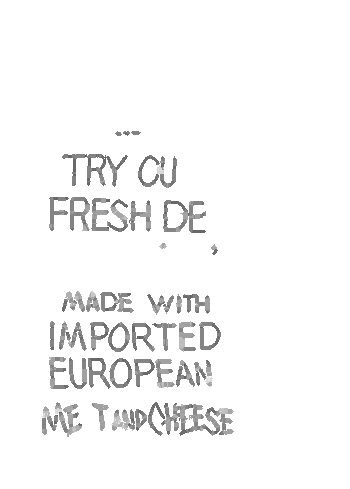 TRY OU
FRESH DE
MADE WITH
IMPORTED
EUROPEAN
ME T AND CHEESE